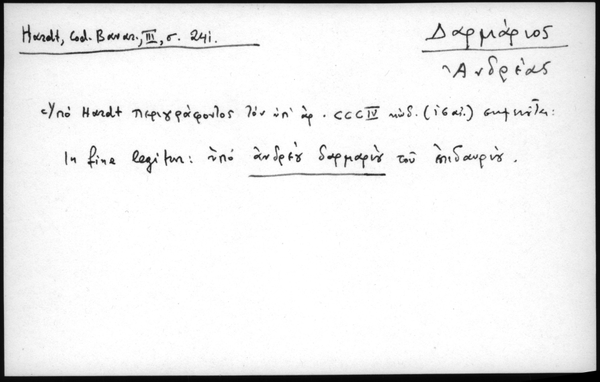 Hardt, Cod. Bavar., III, σ. 241.
Δαρμάριος
Ἀνδρέας
Ὑπὸ Hardt περιγράφοντος τὸν ὑπ' ἀρ. CCCIV κώδ. (ις αἰ.) σημειοῦται:
In fine legitur: ὑπό ἀνδρέου δαρμαρίου τοῦ ἐπιδαυρίου.